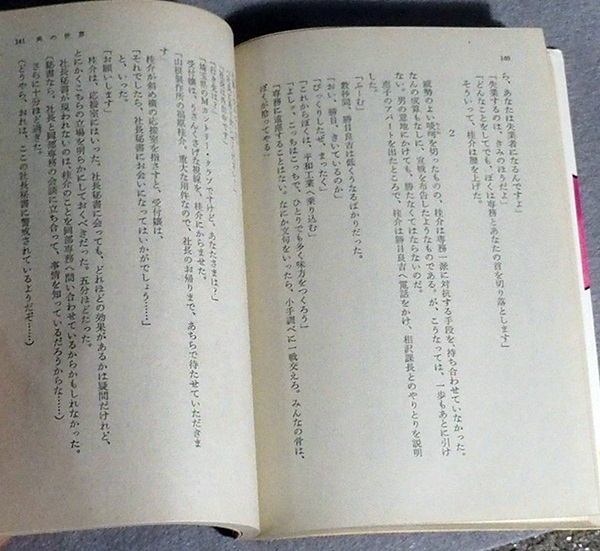 180
ら、あなたは失業者になるんですよ」
「失業するのは、きみのほうだよ」
「どんなことをしてでも、ぼくは専務とあなたの首を切り落とします」
そういって、桂介は腰を上げた。
2
威勢のよい啖呵を切ったものの、桂介は専務一派に対抗する手段を、持ち合わせていなかった。
なんの成算もなしに、宣戦を布告したようなものである。が、こうなっては、一歩もあとに引け
ない。男の意地にかけても、勝たなくてはならないのだ。
恵子のアパートをはたところで、桂介は勝目良吉へ電話をかけ、相沢課長とのやりとりを説明
した。
「ふーむ」
数秒間、勝目良吉は低くうなるばかりだった。
「おい、勝目、きいているのか」
「びっくりしたぜ、まったく」
「これからぼくは、平和工業へ乗り込む」
「よし。こっちはこっちで、ひとりでも多く味方をつくろう」
「専務に遠慮することはない。なにか文句をいったら、小手調べに一戦交えろ。みんなの骨は、
ぼくが拾ってやる」
181
「埼玉県のMカントリー・クラブですけど、あなたさまは?」
受付嬢は、うさんくさげな視線を、桂介にからませた。
「山根製作所の福原桂介。重大な用件なので、社長のお帰りまで、あちらで待たせていただきま
す」
桂介が斜め横の応接室を指さすと、受付嬢は、
「それでしたら、社長秘書にお会いになってはいかがでしょう……」
と、いった。
「お願いします」
桂介は、応接室にはいった。社長秘書に会っても、どれほどの効果があるかは疑問だけれど、
とにかくこちらの立場を明らかにしておくべきだった。五分ほどたった。
社長秘書が現われないのは、桂介のことを岡部専務へ問い合わせているからかもしれなかった。
(秘書なら、社長と岡部専務の会談に立ち合って、事情を知っているだろうからな……)
さらに十分ほど過ぎた。
(どうやら、おれは、ここの社長秘書に警戒されているようだぞ……)